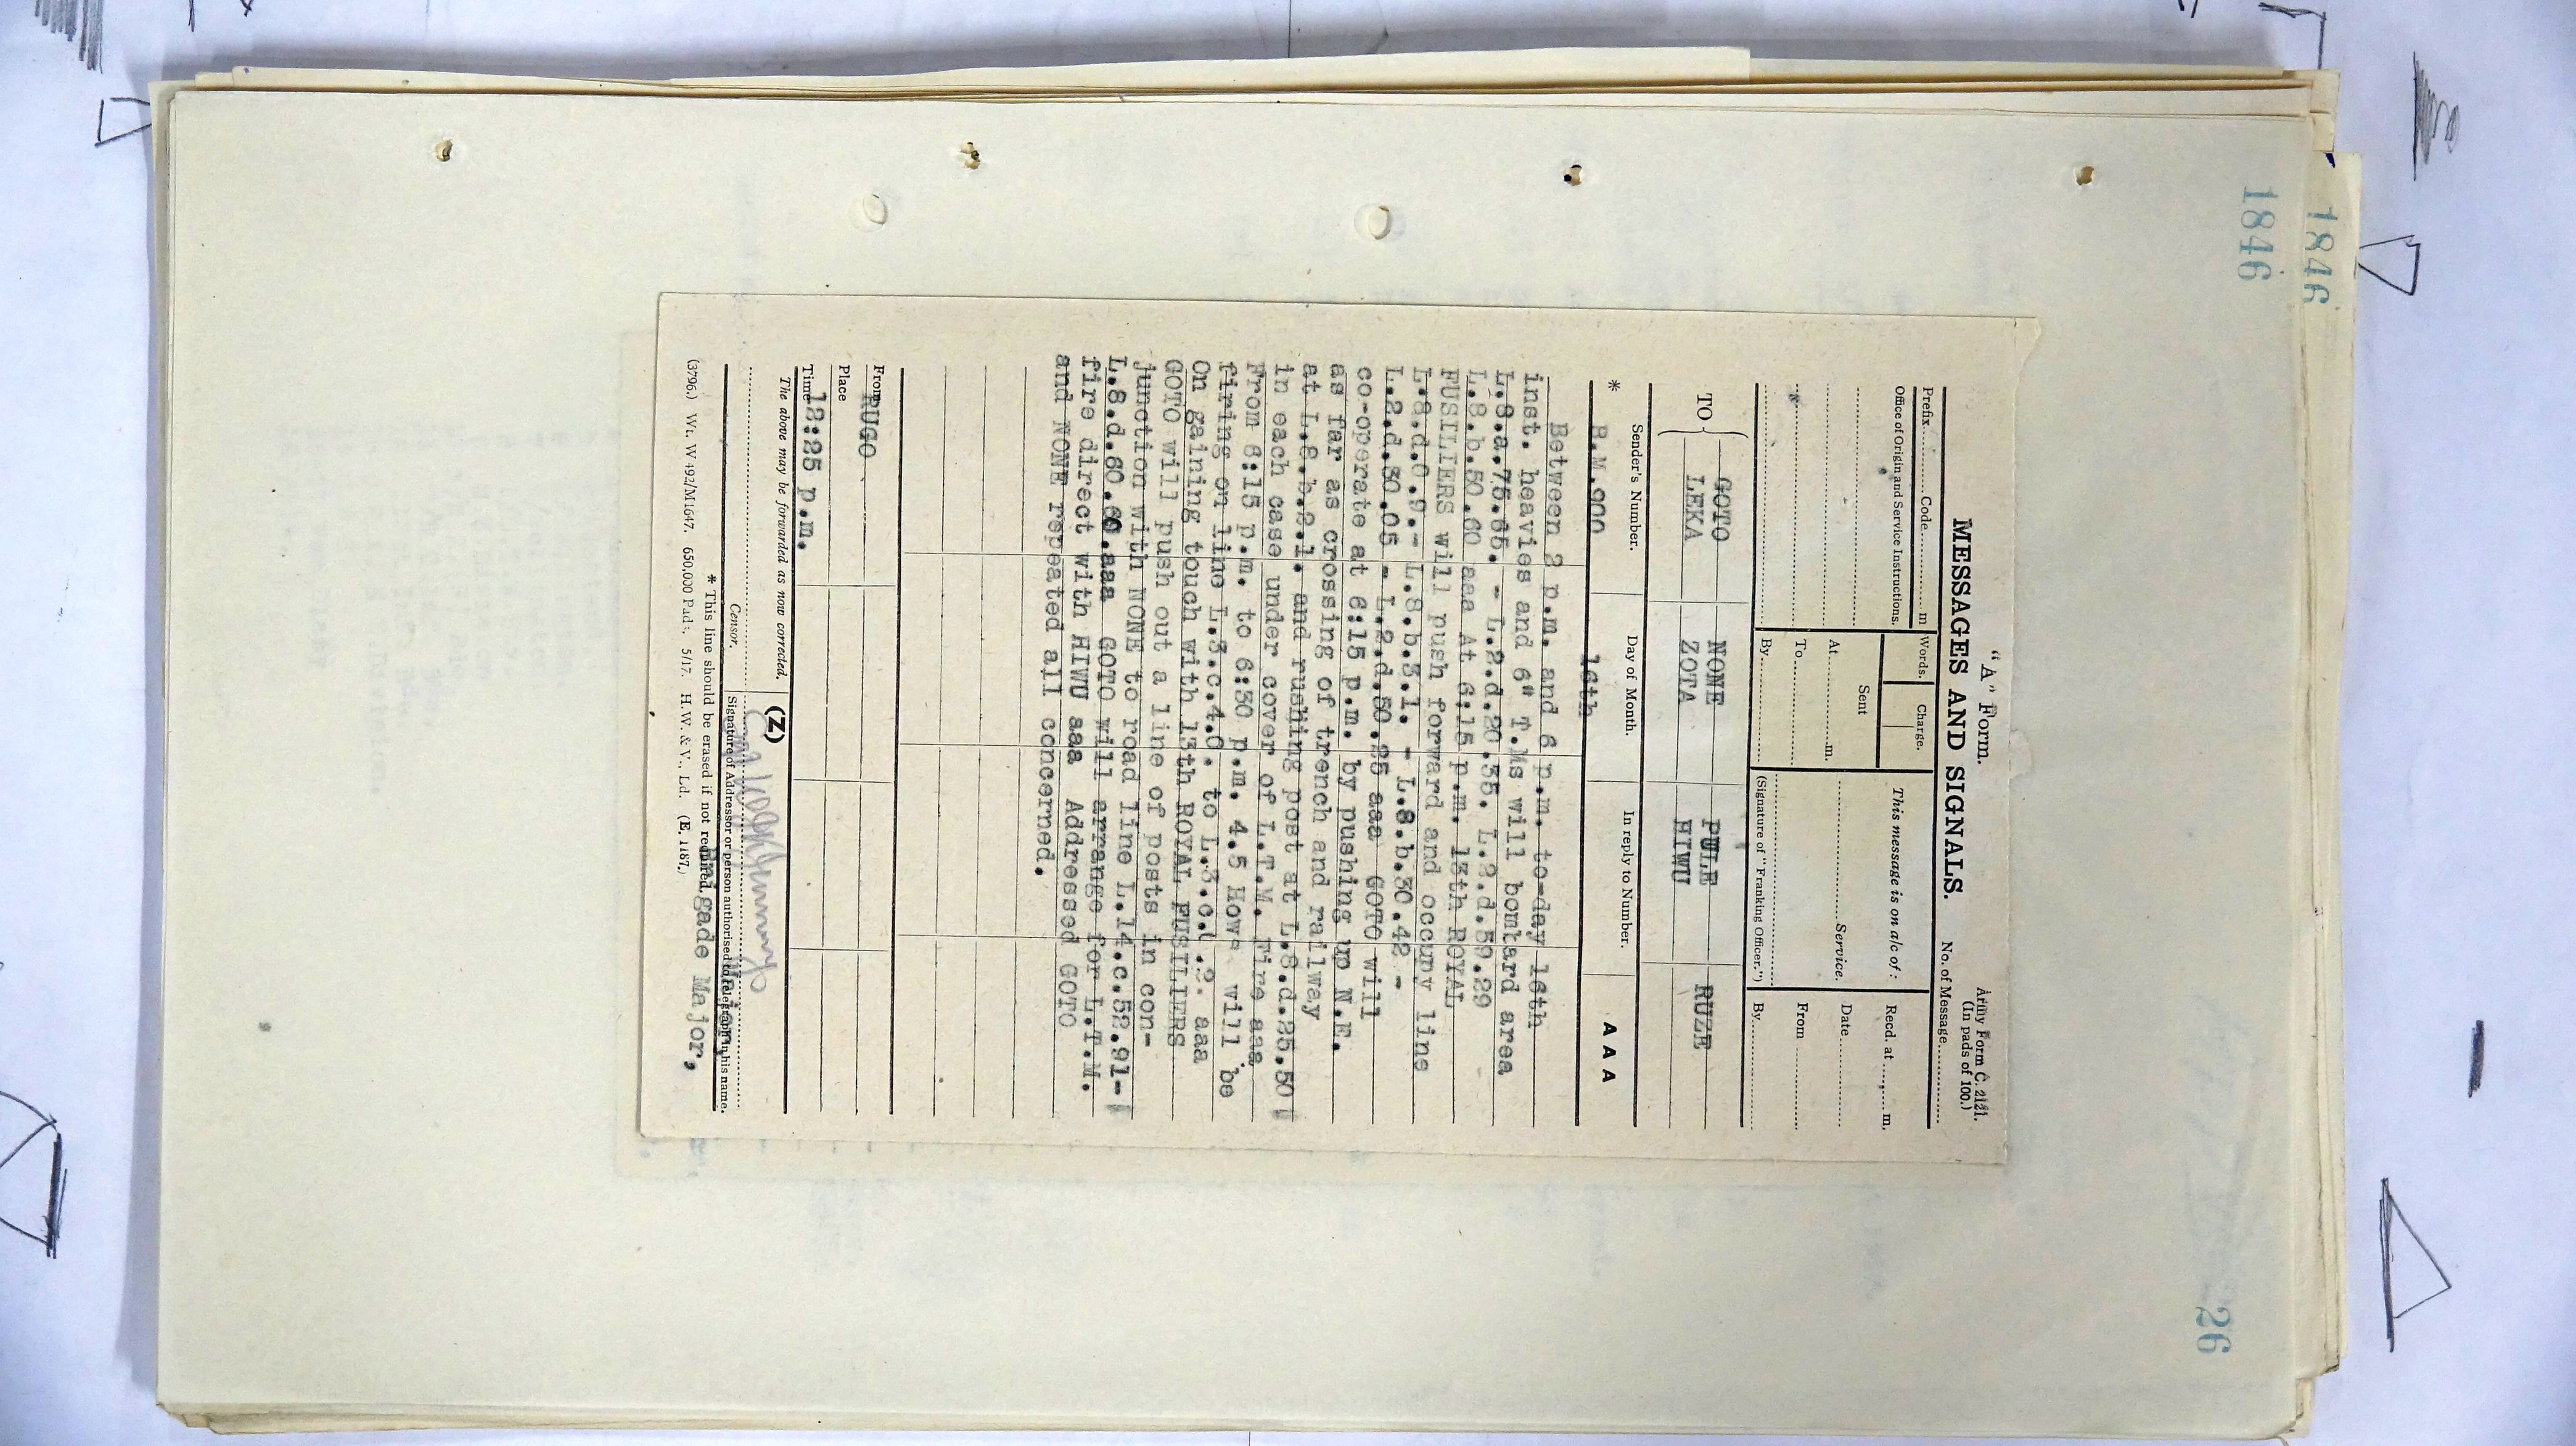 1846
1846
26
"A" Form.
Army Form C. 2121.
(In pads of 100.)
MESSAGES AND SIGNALS.
No. of Message
Prefix Code m
Words. Charge.
This message is on a/c of :
Recd. at m.
Office of Origin and Service Instructions.
Sent
At m.
Service.
Date
To
From
By
(Signature of "Franking Officer.")
By
TO
GOTO NONE PULE RUZE
LEKA ZOTA HIWU
Sender's Number. Day of Month. In reply to Number. A A A
* B.M.900 16th
Between 2 p.m. and 6 p.m. to-day 16th
inst. heavies and 6" T.Ms will bombard area
L.8.a.75.65. - L.2.d.20.35. L.2.d.59.29
L.8.b.50.60 aaa At 6:15 p.m. 13th ROYAL
FUSILIERS will push forward and occupy line
L.8.d.0.9.- L.8.b.3.1. - L.8.b.30.42 -
L.2.d.30.05 - L.2.d.50.25 aaa GOTO will
co-operate at 6:15 p.m. by pushing up N.E.
as far as crossing of trench and railway
at L.8.b.2.1. and rushing post at L.8.d.25.50
in each case under cover of L.T.M. Fire aaa
From 6:15 p.m. to 6:30 p.m. 4.5 Hows will be
firing on line L.3.c.4.0. to L.3.c. .2. aaa
On gaining touch with 13th ROYAL FUSILIERS
GOTO will push out a line of posts in con-
junction with NONE to road line L.14.c.52.91-
L.8.d.60.60.aaa GOTO will arrange for L.T.M.
fire direct with HIWU aaa Addressed GOTO
and NONE repeated all concerned.
From RUGO
Place
Time 12:25 p.m.
The above may be forwarded as now corrected. (Z)
Censor. Signature of Addressor or person authorised to telegraph in his name.
* This line should be erased if not required.
Brigade Major,
(3796.) Wt. W 492/M1647. 650,000 Pads. 5/17. H.W. & V., Ld. (E. 1187.)